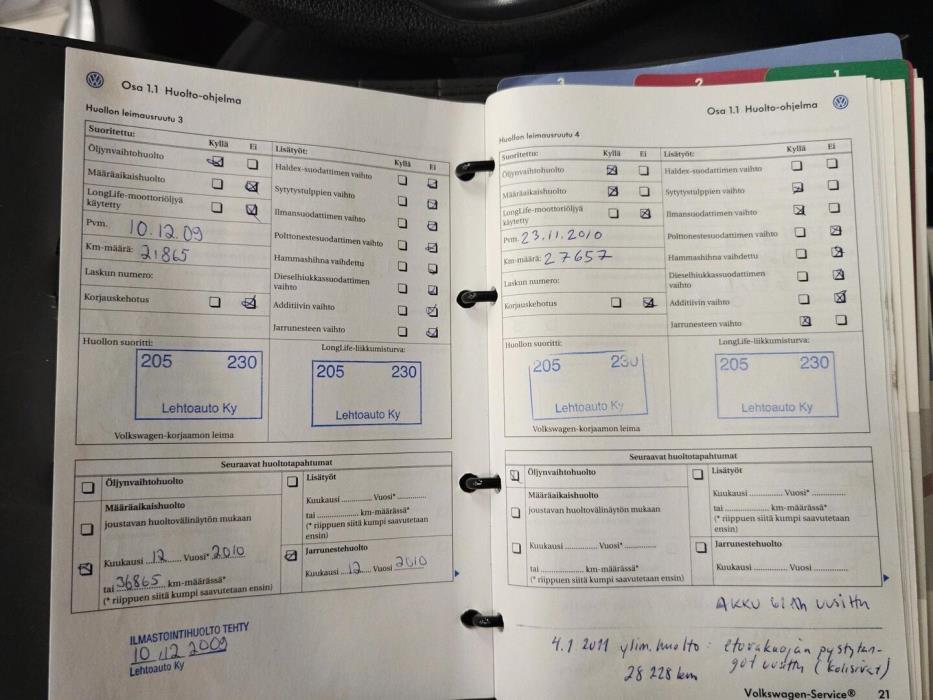 3
2
1
Osa 1.1 Huolto-ohjelma
Huollon leimausruutu 3
Suoritettu:
Kyllä Ei
Öljynvaihtohuolto
Määräaikaishuolto
LongLife-moottoriöljyä
käytetty
Pvm. 10.12.09
Km-määrä: 21865
Laskun numero:
Korjauskehotus
Lisätyöt:
Kyllä Ei
Haldex-suodattimen vaihto
Sytytystulppien vaihto
Ilmansuodattimen vaihto
Polttonestesuodattimen vaihto
Hammashihna vaihdettu
Dieselhiukkassuodattimen
vaihto
Additiivin vaihto
Jarrunesteen vaihto
Huollon suoritti:
205 230
Lehtoauto Ky
Volkswagen-korjaamon leima
LongLife-liikkumisturva:
205 230
Lehtoauto Ky
Seuraavat huoltotapahtumat
Öljynvaihtohuolto
Määräaikaishuolto
joustavan huoltovälinäytön mukaan
Kuukausi 12 Vuosi* 2010
tai 36865 km-määrässä*
(* riippuen siitä kumpi saavutetaan ensin)
Lisätyöt
Kuukausi ............ Vuosi* ............
tai ............ km-määrässä*
(* riippuen siitä kumpi saavutetaan
ensin)
Jarrunestehuolto
Kuukausi 12 Vuosi 2010
ILMASTOINTIHUOLTO TEHTY
10.12.2009
Lehtoauto Ky
Osa 1.1 Huolto-ohjelma
Huollon leimausruutu 4
Suoritettu:
Kyllä Ei
Öljynvaihtohuolto
Määräaikaishuolto
LongLife-moottoriöljyä
käytetty
Pvm. 23.11.2010
Km-määrä: 27657
Laskun numero:
Korjauskehotus
Lisätyöt:
Kyllä Ei
Haldex-suodattimen vaihto
Sytytystulppien vaihto
Ilmansuodattimen vaihto
Polttonestesuodattimen vaihto
Hammashihna vaihdettu
Dieselhiukkassuodattimen
vaihto
Additiivin vaihto
Jarrunesteen vaihto
Huollon suoritti:
205 230
Lehtoauto Ky
Volkswagen-korjaamon leima
LongLife-liikkumisturva:
205 230
Lehtoauto Ky
Seuraavat huoltotapahtumat
Öljynvaihtohuolto
Määräaikaishuolto
joustavan huoltovälinäytön mukaan
Kuukausi ............ Vuosi* ............
tai ............ km-määrässä*
(* riippuen siitä kumpi saavutetaan ensin)
Lisätyöt
Kuukausi ............ Vuosi* ............
tai ............ km-määrässä*
(* riippuen siitä kumpi saavutetaan
ensin)
Jarrunestehuolto
Kuukausi ............ Vuosi ............
AKKU 61Ah uusittu
4.1 2011 ylim. huolto: etuvakaajan pystytan-
28 228 km got uusittu (kolisivat)
Volkswagen-Service® 21